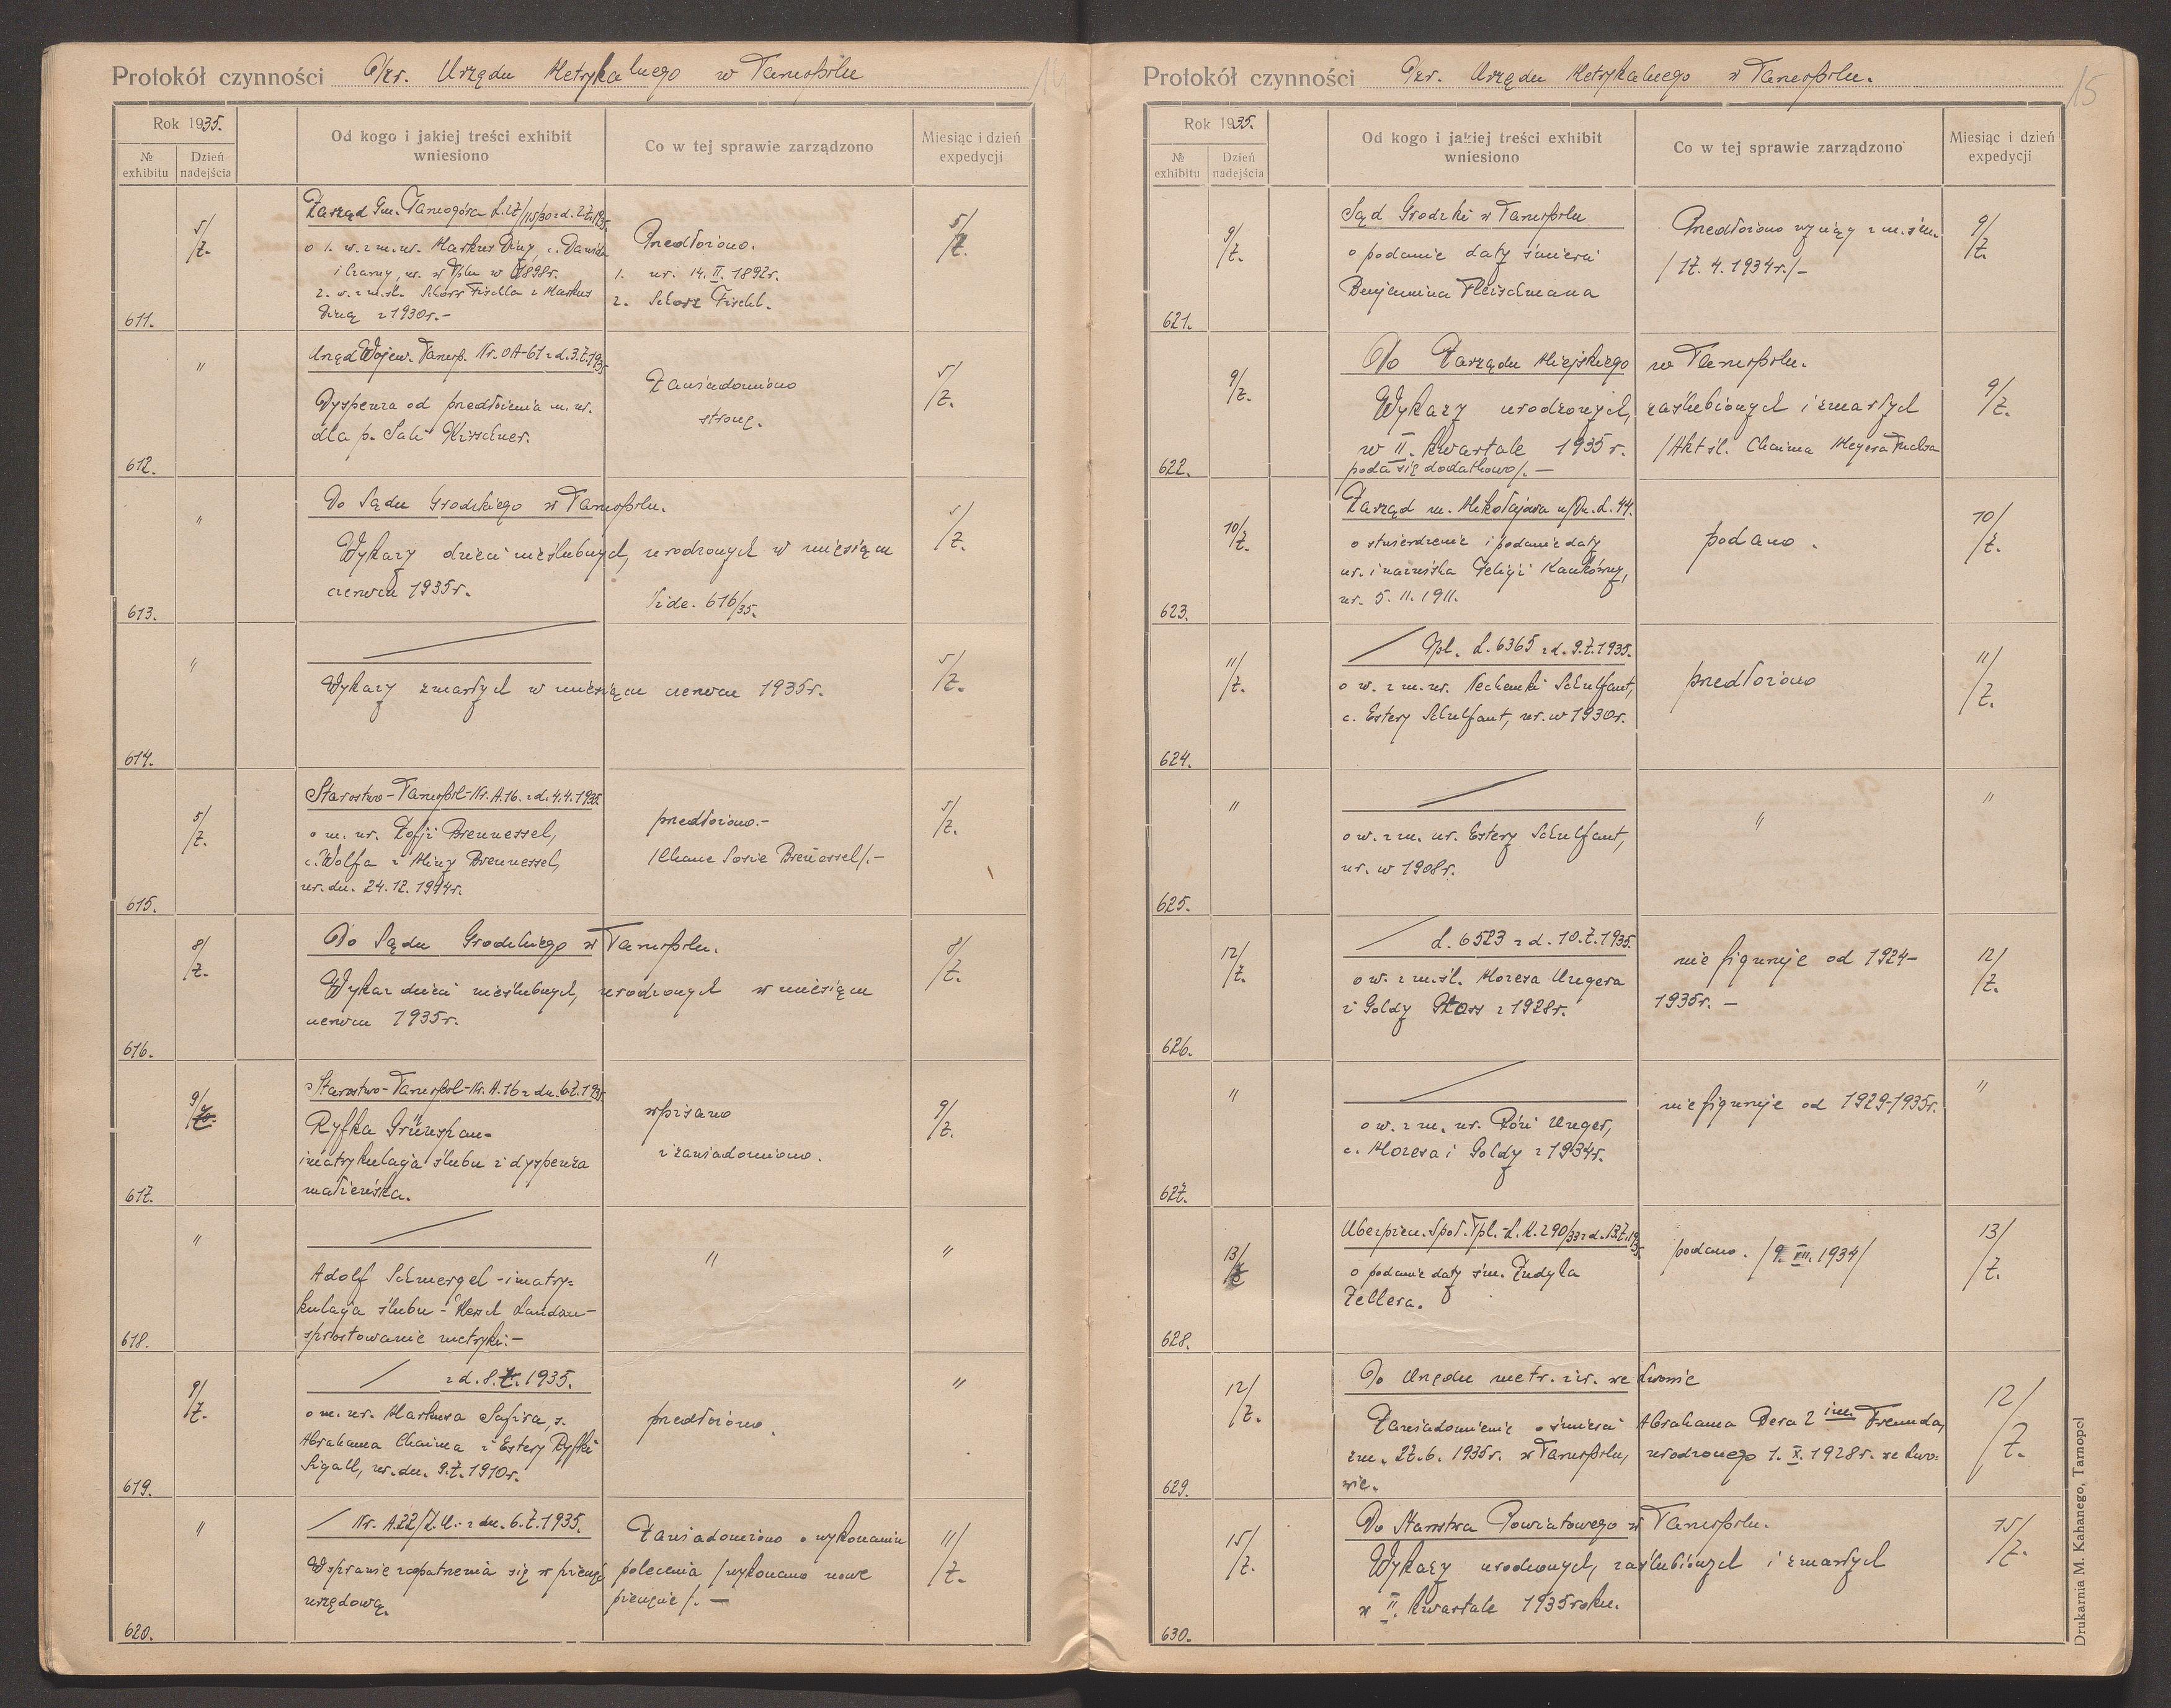 Protokół czynności Izr. Urzędu Metrykalnego w Tarnopolu
14
Rok 1935.
№ exhibitu
Dzień nadejścia
Od kogo i jakiej treści exhibit wniesiono
Co w tej sprawie zarządzono
Miesiąc i dzień expedycji
611.
5/7.
Zarząd Gm.
o 1. w. z m. ur. Markus Diny, c. Dawida
i Czarny, ur. w Tplu w 1898r.
2. w. z m. śl. Schorr Fischla z Markus
Diną z 1930r.-
Przedłożono.
1. ur. 14. II. 1892r.
2. Schorr Fischl.
5/7.
612.
"
Urząd Wojew. Tarnop. Nr. OA-61 z d. 3.7.1935
Dyspenza od przedłożenia m. ur.
dla p. Sali Kirschner.
Zawiadomiono
stronę.
5/7.
613.
"
Do Sądu Grodzkiego w Tarnopolu.
Wykazy dzieci nieślubnych, urodzonych w miesiącu
czerwcu 1935r.
Vide. 616/35.
5/7.
614.
"
Wykazy zmarłych w miesiącu czerwcu 1935r.
5/7.
615.
5/7.
Starostwo-Tarnopol-Nr. A.16. z d. 4.4.1935
o m. ur. Zofji Brennessel,
c. Wolfa i Miny Brennessel,
ur. dn. 24.12.1914r.
przedłożono.-
/Chane Sosie Brenessel/.-
5/7.
616.
8/7.
Do Sądu Grodzkiego w Tarnopolu.
Wykaz dzieci nieślubnych, urodzonych w miesiącu
czerwcu 1935r.
8/7.
617.
9/7.
Starostwo-Tarnopol-Nr. A.16 z dn. 6.7.1935
Ryfka Grünspan-
imatrykulacja ślubu i dyspenza
małżeńska.
wpisano
i zawiadomiono.
9/7.
618.
"
Adolf Schmergel - imatry-
kulacja ślubu - Hersch Landau-
sprostowanie metryki.-
"
"
619.
9/7.
z d. 8.7.1935.
o m. ur. Markusa Safira, s.
Abrahama Chaima i Estery Ryfki
Sigall, ur. dn. 9.7.1910r.
przedłożono.
"
620.
"
Nr. A.22/ z dn. 6.7.1935.
W sprawie zaopatrzenia się w pieczęć
urzędową.
Zawiadomiono o wykonaniu
polecenia /wykonano nowe
pieczęcie/.-
11/7.
Protokół czynności Izr. Urzędu Metrykalnego w Tarnopolu.
15
Rok 1935.
№ exhibitu
Dzień nadejścia
Od kogo i jakiej treści exhibit wniesiono
Co w tej sprawie zarządzono
Miesiąc i dzień expedycji
621.
9/7.
Sąd Grodzki w Tarnopolu
o podanie daty śmierci
Benjamina Fleischmana
Przedłożono wyciąg z m. śm.
/17.4.1934r./-
9/7.
622.
9/7.
Do Zarządu Miejskiego w Tarnopolu.
Wykazy urodzonych, zaślubionych i zmarłych
w II. kwartale 1935r. /Akt śl. Chaima Meyera Fuchsa
poda się dodatkowo/.-
9/7.
623.
10/7.
Zarząd m. Mikołajowa n/Dn. L. 44.
o stwierdzenie i podanie daty
ur. i nazwiska Felicji
ur. 5. 11. 1911.
podano.
10/7.
624.
11/7.
Tpl. L. 6365 z d. 9.7.1935.
o w. z m. ur. Nechemki Schulfaut,
c. Estery Schulfaut, ur. w 1930r.
przedłożono
11/7.
625.
"
o w. z m. ur. Estery Schulfaut,
ur. w 1908r.
"
"
626.
12/7.
L. 6523 z d. 10.7.1935.
o w. z m. śl. Mozesa Ungera
i Goldy z 1928r.
nie figuruje od 1924-
1935r.-
12/7.
627.
"
o w. z m. ur. Róży Unger,
c. Mozesa i Goldy z 1934r.
nie figuruje od 1929-1935r.
"
628.
13/7
Ubezpiecz. Społ. Tpl.-L.K.290/33 z d. 13.7.1935.
o podanie daty śm. Judyka
Zellera.
podano. /9. VII. 1934/
13/7.
629.
12/7.
Do Urzędu metr. izr. we Lwowie
Zawiadomienie o śmierci Abrahama Bera 2 im. Freunda,
zm. 27.6.1935r. w Tarnopolu, urodzonego 1. X. 1928r. we Lwo-
wie.
12/7.
630.
15/7.
Do Starostwa Powiatowego w Tarnopolu.
Wykazy urodzonych, zaślubionych i zmarłych
w II. kwartale 1935 roku.
15/7.
Drukarnia M. Kahanego, Tarnopol